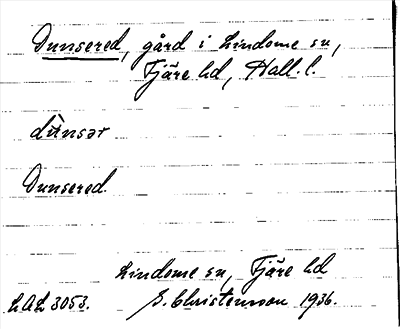 Dunsered, gård i Lindome sn,
Fjäre hd, Hall. l.
dùnsər
Dunsered.
Lindome sn, Fjäre hd
LAL 3053. S. Christensson 1936.